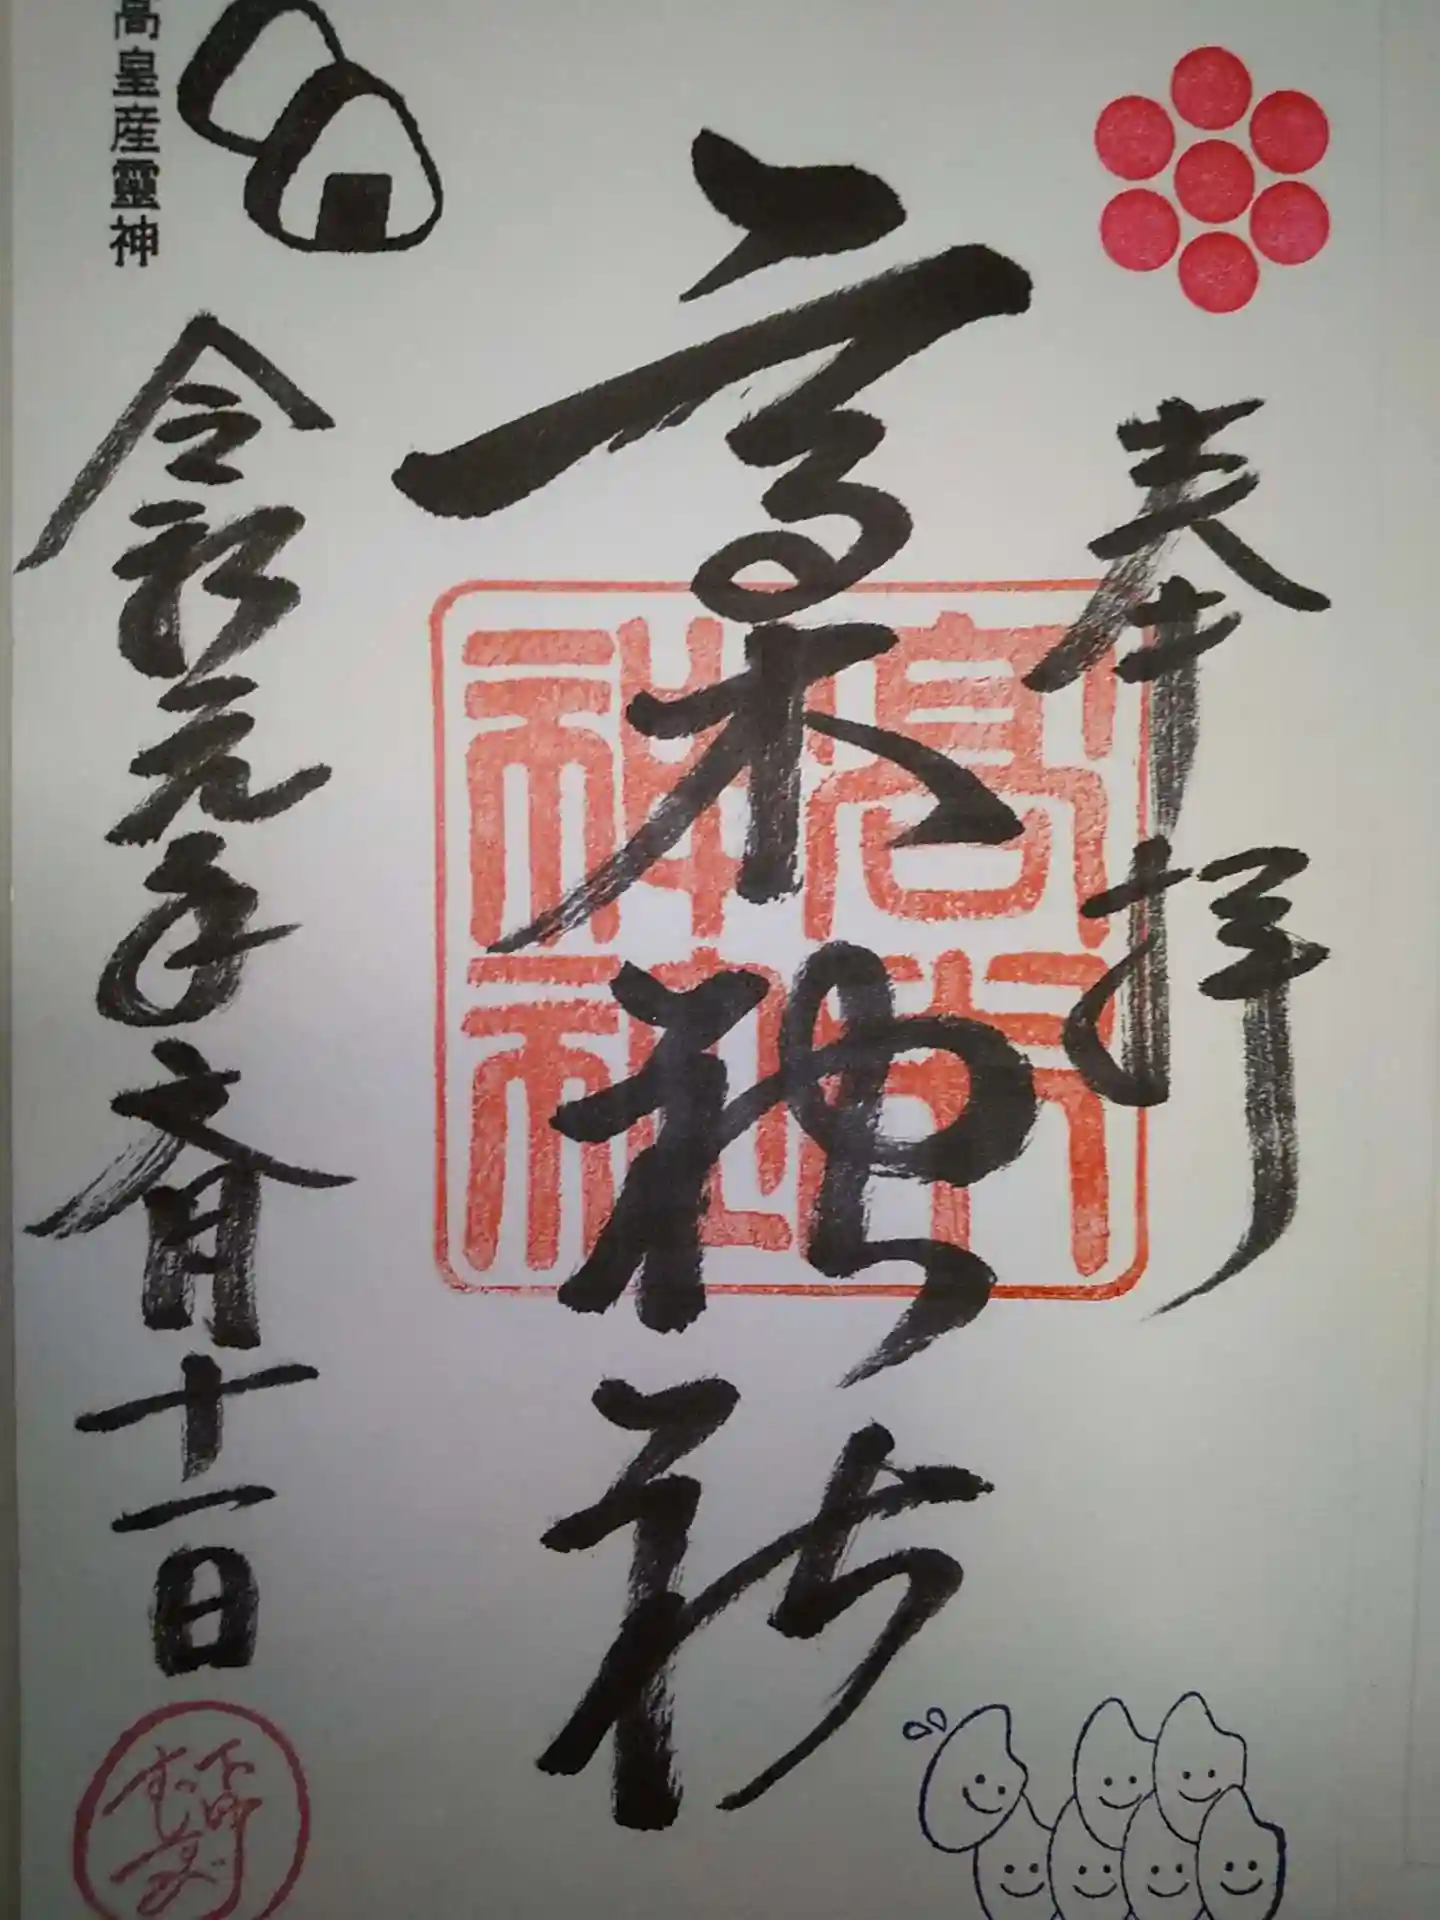 奉拝
高木神社
高木
神社
高皇産靈神
令和元年文月十一日